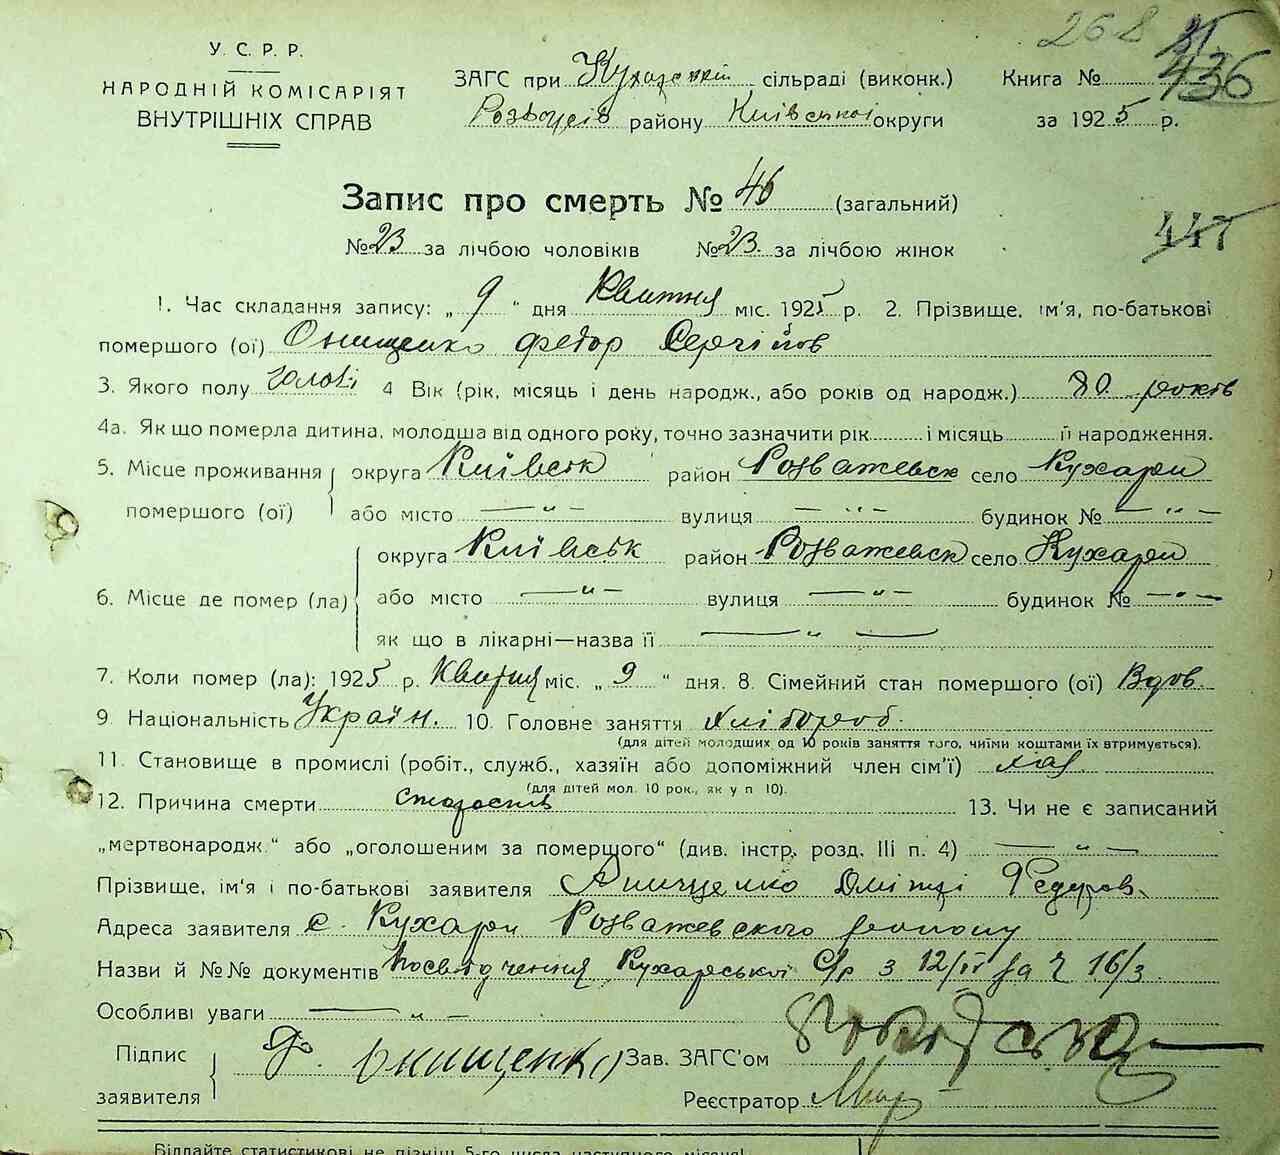 268
31
436
У. С. Р. Р.
НАРОДНІЙ КОМІСАРІЯТ
ВНУТРІШНІХ СПРАВ
ЗАГС при Кухарській сільраді (виконк.)
району Київської округи
Книга №
за 1925 р.
Запис про смерть № 46 (загальний)
447
№ 23 за лічбою чоловіків № 23. за лічбою жінок
1. Час складання запису: „ 9 “ дня Квитня міс. 1925 р. 2. Прізвище, ім'я, по-батькові
помершого (ої) Онищенко Федор Сергійов
3. Якого полу чолові 4 Вік (рік, місяць і день народж., або років од народж.) 80 років
4а. Як що померла дитина, молодша від одного року, точно зазначити рік і місяць її народження.
5. Місце проживання округа Київськ район Розважевськ село Кухари
помершого (ої) або місто — „ — вулиця — „ — будинок № — „ —
округа Київськ район Розважевськ село Кухари
6. Місце де помер (ла) або місто — „ — вулиця — „ — будинок № — „ —
як що в лікарні—назва її — „ —
7. Коли помер (ла): 1925 р. Квитня міс. „ 9 “ дня. 8. Сімейний стан помершого (ої) Вдов.
9. Національність Україн. 10. Головне заняття Хлібороб.
(для дітей молодших од 10 років заняття того, чиїми коштами їх втримується).
11. Становище в промислі (робіт., служб., хазяїн або допоміжний член сім'ї) хаз
(для дітей мол. 10 рок., як у п 10).
12. Причина смерти старость 13. Чи не є записаний
„мертвонародж.“ або „оголошеним за помершого“ (див. інстр. розд. III п. 4) — „ —
Прізвище, ім'я і по-батькові заявителя Анищенко Дмітрі Федоров.
Адреса заявителя с. Кухари Розважевского району
Назви й №№ документів Посвідчення Кухарської С/р з 12/IV за Ч 16/3
Особливі уваги — „ —
Підпис
заявителя
Онищенко
Зав. ЗАГС'ом
Реєстратор
Відлайте статистикові не пізніш 5-го числа наступного місяця!